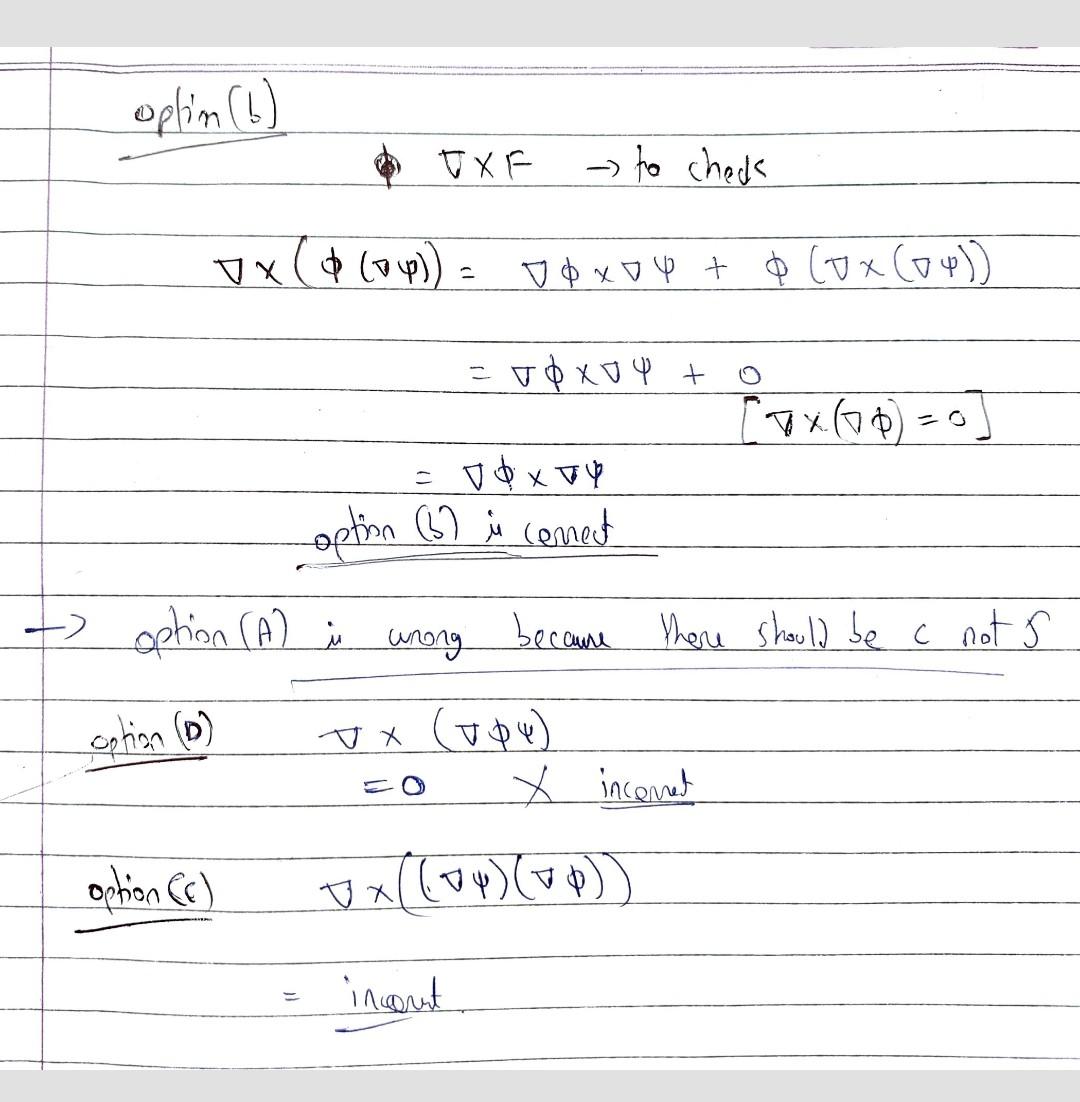 option (b)
∇×F → to check
∇×(ϕ(∇ψ)) = ∇ϕ×∇ψ + ϕ(∇×(∇ψ))
= ∇ϕ×∇ψ + 0
[∇×(∇ϕ)=0]
= ∇ϕ×∇ψ
option (b) is correct
→ option (A) is wrong because there should be c not S
option (D) ∇×(∇ϕψ)
=0 X incorrect
option (c) ∇×((∇ψ)(∇ϕ))
= incorrect